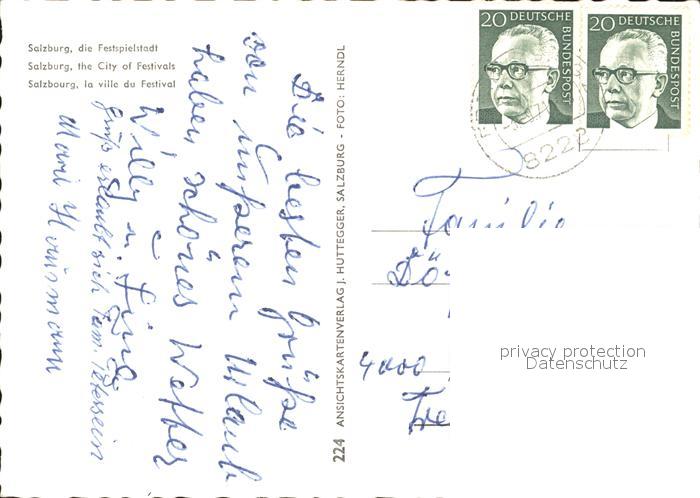 Salzburg, die Festspielstadt
Salzburg, the City of Festivals
Salzbourg, la ville du Festival
Die besten Grüße
von unserem Urlaub
haben schönes Wetter
Willy u.
Grüße erlaubt sich Fam.
Marie
224 ANSICHTSKARTENVERLAG J. HUTTEGGER, SALZBURG - FOTO: HERNDL
20 DEUTSCHE BUNDESPOST
20 DEUTSCHE BUNDESPOST
8222
Familie
4000
privacy protection
Datenschutz